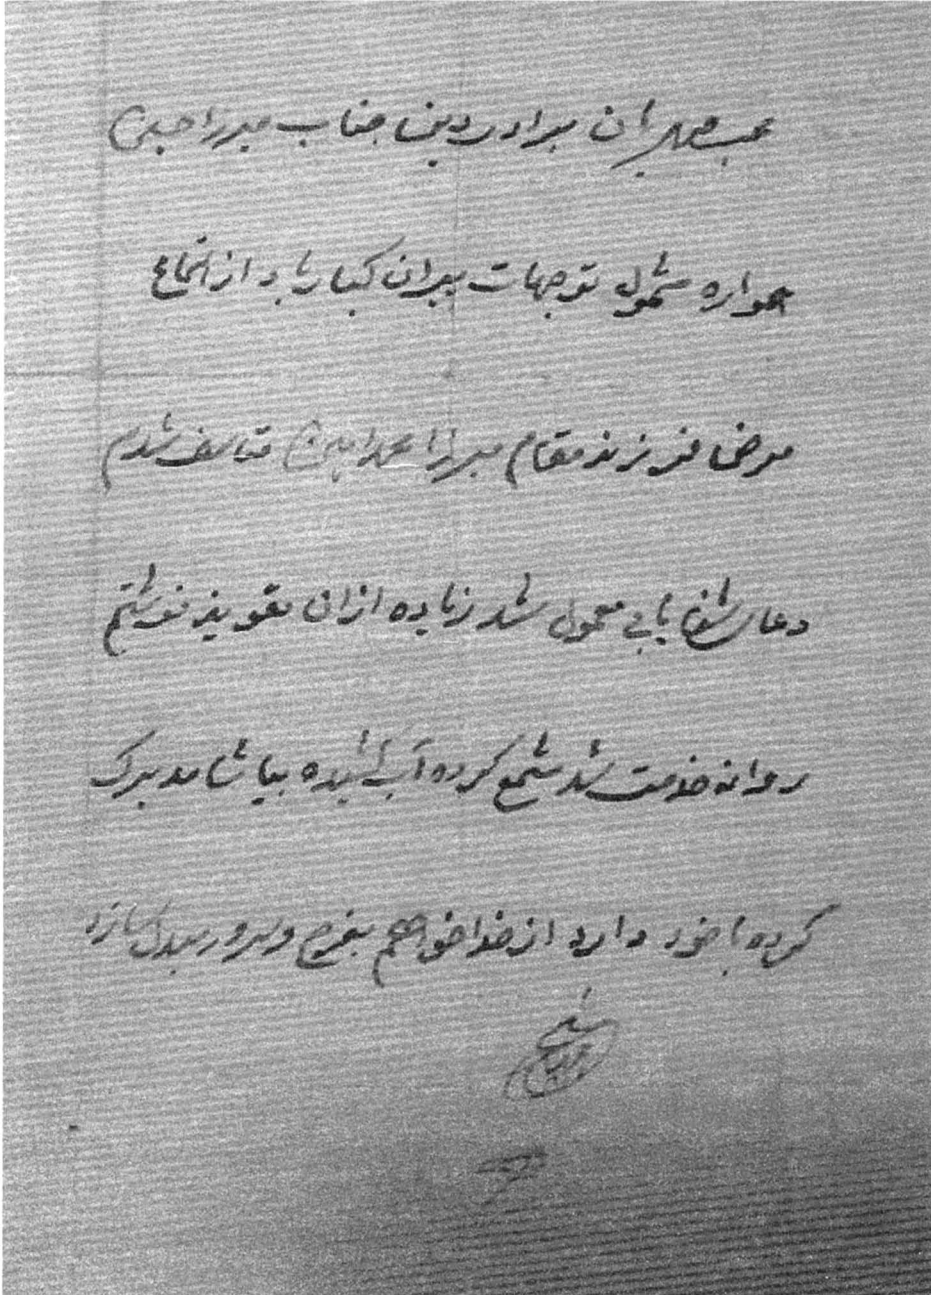 محب مهربان برادر دینی جناب میرزا حسین
همواره شمول توجهات پیران کبار باد از استماع
مرضی فرزند مقام میرزا محمد امین متاسف شدم
دعای شفایابی معمول شد زیاده ازان تعویذ نوشتم
روانه خدمت شد شمع کرده آب کشیده بیاشامد بزرگ
کرده با خود دارد از خدا خواهم بفرح و سرور مبدل سازد